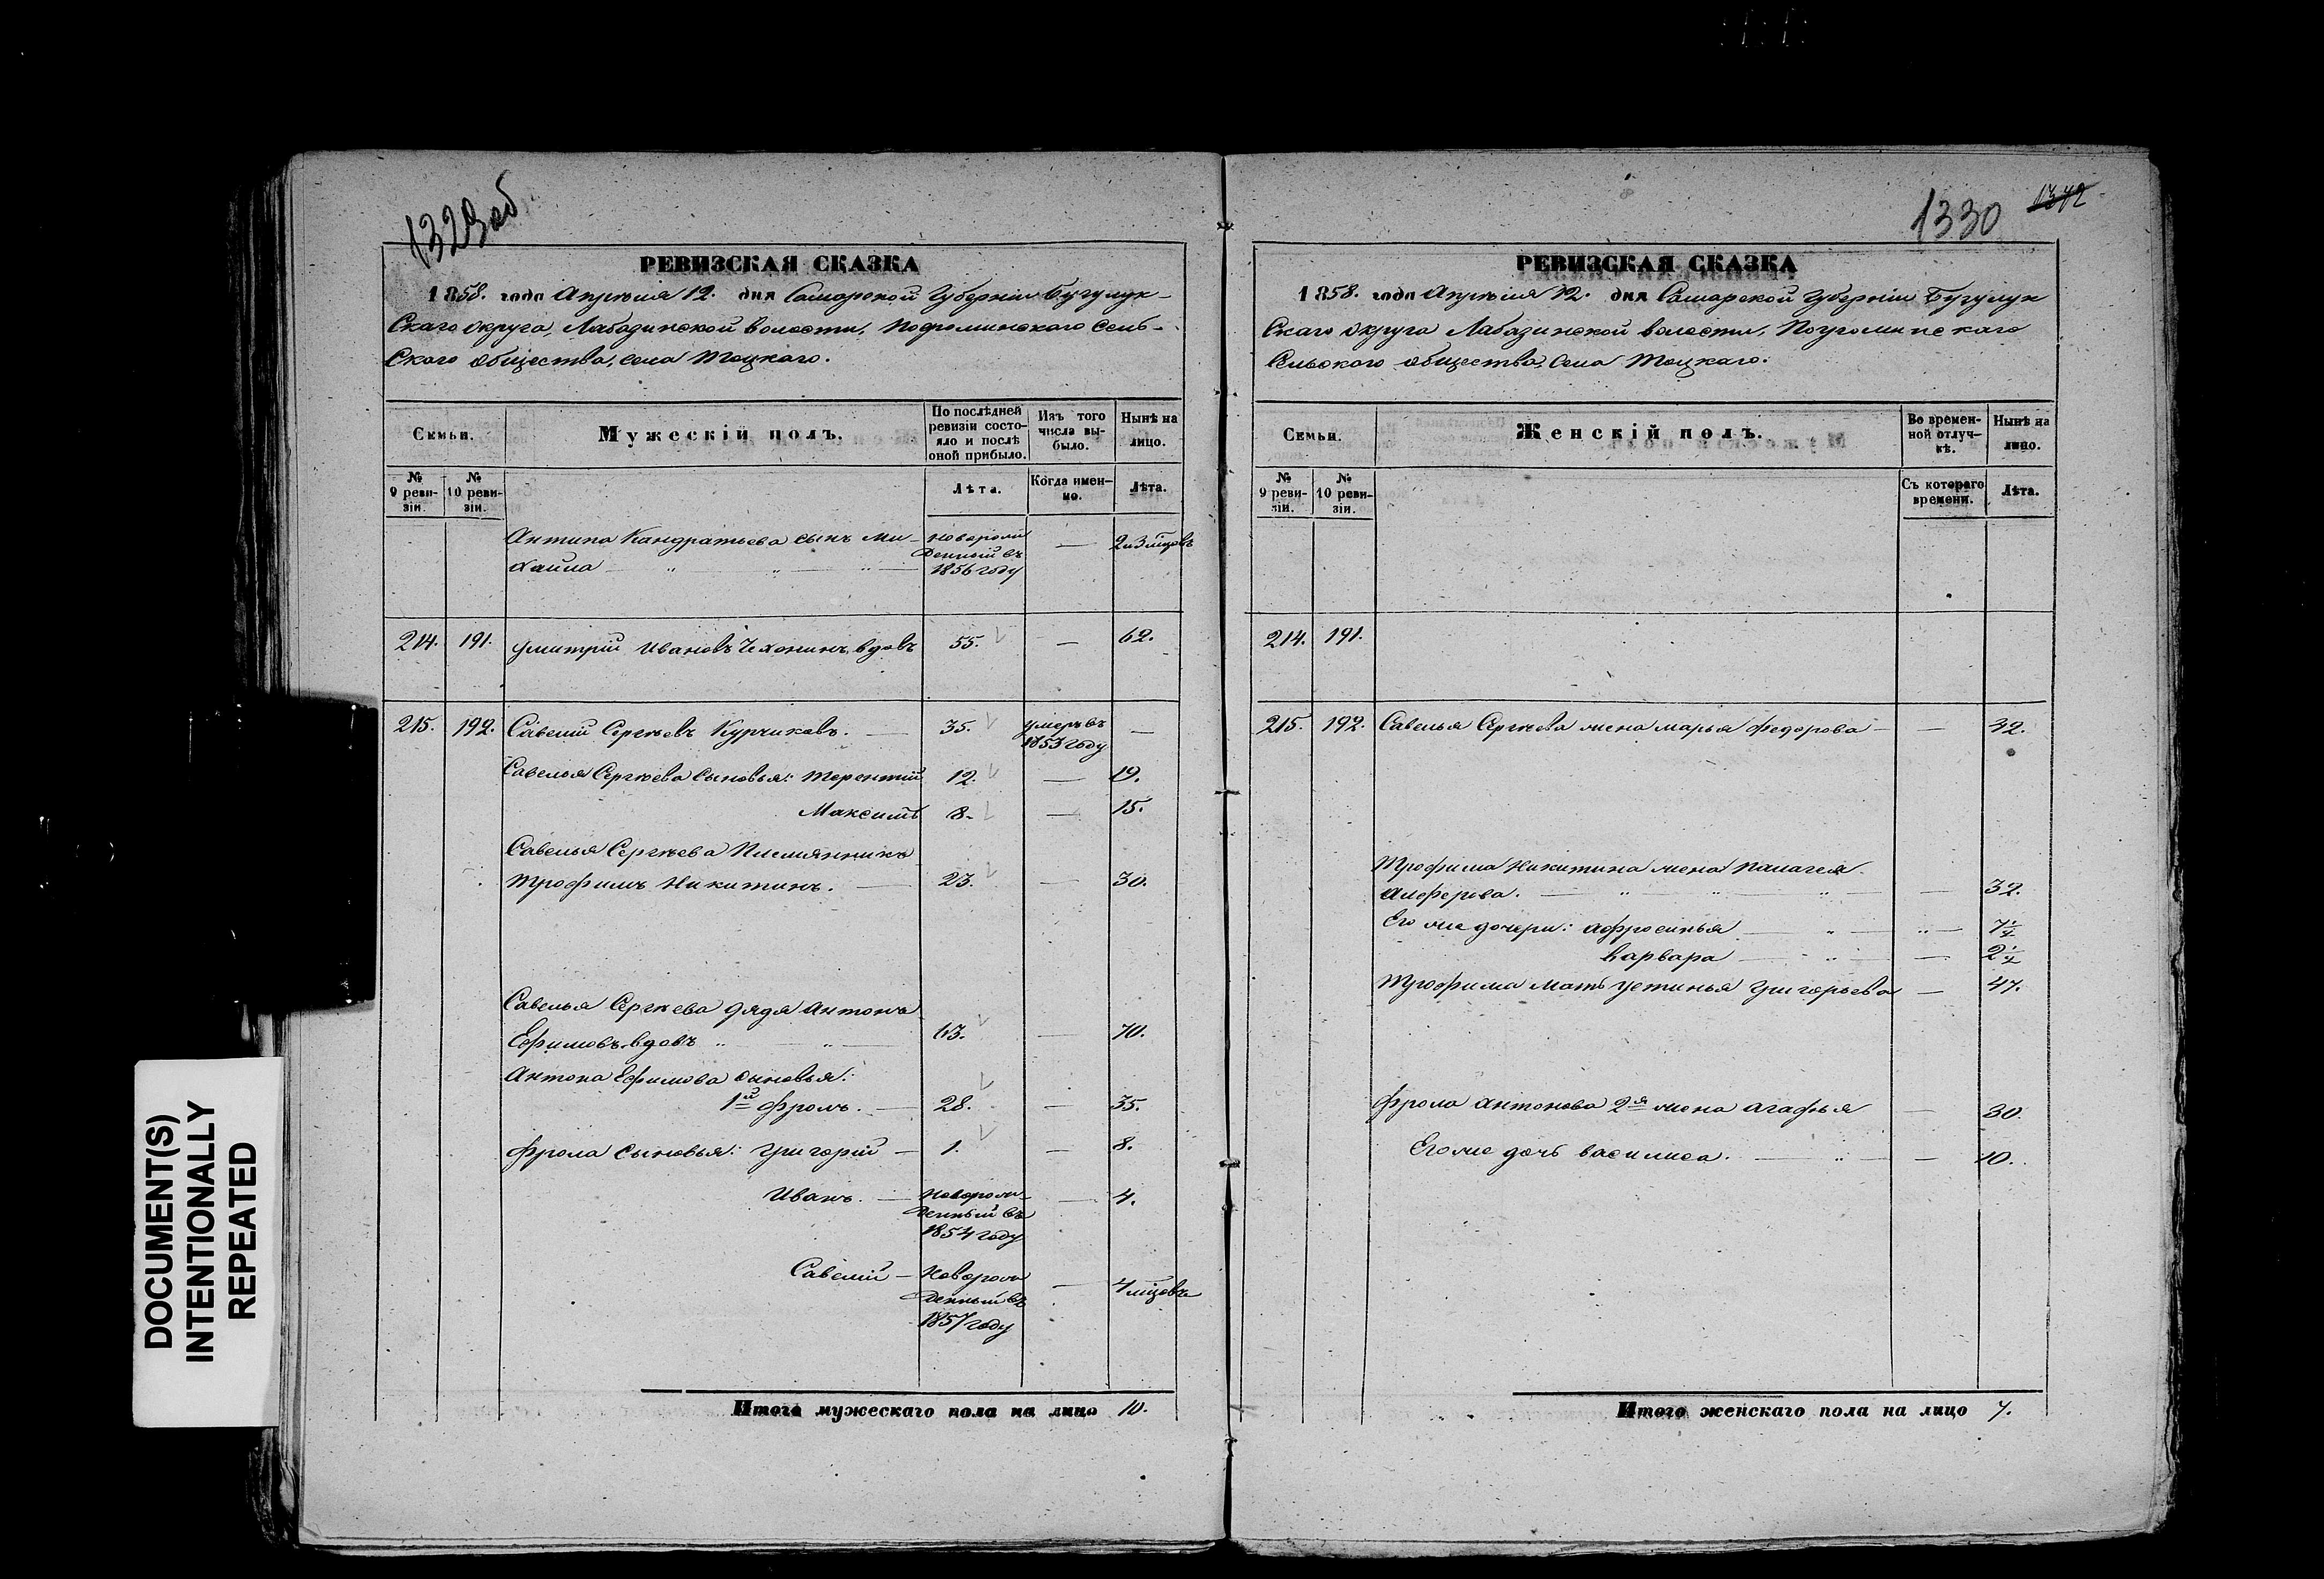 1329об
РЕВИЗСКАЯ СКАЗКА
1858. года Апрѣля 12. дня Самарской Губерніи Бузулук-
скаго округа, Лабазинской волости, Погроминскаго сель-
скаго общества, села Тоцкаго.
Семьи.
Мужескій полъ.
По послѣдней ревизіи состо-
яло и послѣ
оной прибыло.
Изъ того
числа вы-
было.
Нынѣ на
лицо.
№ 9 реви-
зіи.
№ 10 реви-
зіи.
Лѣта.
Когда имен-
но.
Лѣта.
Антипа Кандратьева сынъ Ми- новорож 2 и 3 мцовъ
хаила денный въ
1856 году
214. 191. Дмитрій Ивановъ Чехонинъ, вдовъ 55. — 62.
215. 192. Савелій Сергѣевъ Курчиковъ. 35. умеръ въ —
1853 году
Савелья Сергѣева сыновья: Терентій 12. — 19.
Максимъ 8. — 15.
Савелья Сергѣева племянникъ
Трофимъ Никитинъ. 23. — 30.
Савелья Сергѣева дядя Антонъ
Ефимовъ, вдовъ 63. — 70.
Антона Ефимова сыновья:
1й Фролъ. 28. — 35.
Фрола сыновья: Григорій — 1. — 8.
Иванъ. — новорож- — 4.
денный въ
1854 году
Савелій — новорож — 4 мцовъ
денный въ
1857 году
Итого мужескаго пола на лицо 10.
1330 1342
РЕВИЗСКАЯ СКАЗКА
1858. года Апрѣля 12. дня Самарской Губерніи Бузулук
скаго округа Лабазинской волости, Погроминскаго
сельского общества, села Тоцкаго.
Семьи.
Женскій полъ.
Во времен-
ной отлуч-
кѣ.
Нынѣ на
лицо.
№ 9 реви-
зіи.
№ 10 реви-
зіи.
Съ котораго
времени.
Лѣта.
214. 191.
215. 192. Савелья Сергѣева жена Марья Федорова — 32.
Трофима Никитина жена Палагея
Алферова. — 32.
Его же дочери: Афросинья — 7½
Варвара — 2½
Трофима мать Устинья Григорьева — 47.
Фрола Антонова 2я жена Агафья — 30.
Его же дочь Василиса. — 10.
Итого женскаго пола на лицо 7.
DOCUMENT(S)
INTENTIONALLY
REPEATED